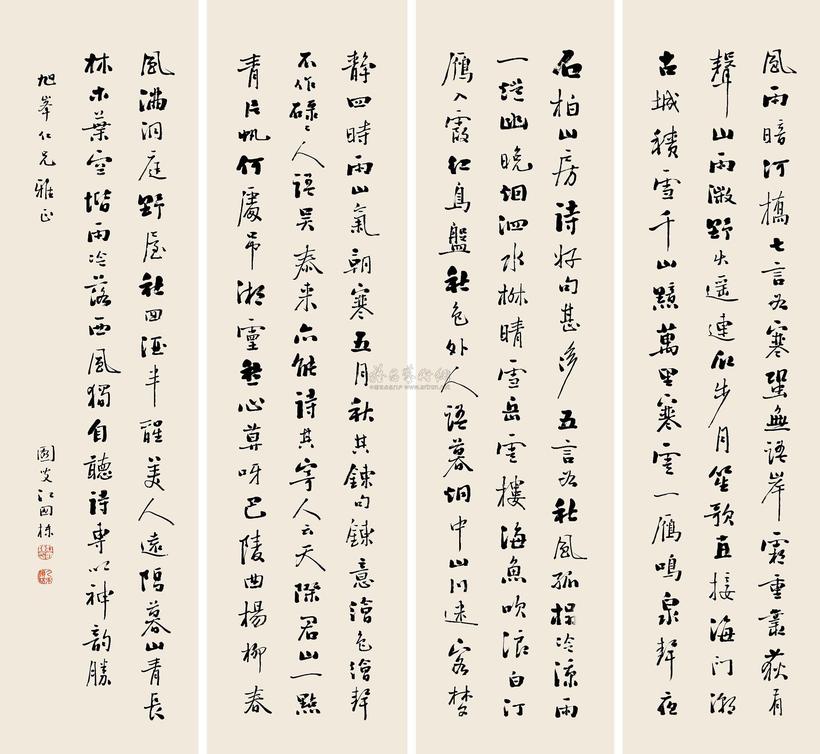 風雨暗河橋七言如寒蛩無語岸霜重叢荻有
聲山雨微野火遥連瓜步月笙歌直接海门潮
古城積雪千山黯萬里寒雲一雁鳴泉聲夜
石柏山房詩好句甚多五言如秋風孤榻冷涼雨
一燈幽晚烟泗水晴雪岳雲樓海魚吹浪白汀
雁入霞紅鳥盤秋色外人語暮烟中山川迷客梦
静四時雨山氣朝寒五月秋其鍊句鍊意繪色繪聲
不作碌々人語吴泰来亦能詩其寄人云天際君山一點
青片帆何處吊湘靈愁心莫呀巴陵曲楊柳春
風满洞庭野屋秋回酒半醒美人遠隔暮山青長
林木葉空堦雨冷落西風獨自聽詩專以神韵勝
旭峯仁兄雅正
江国栋